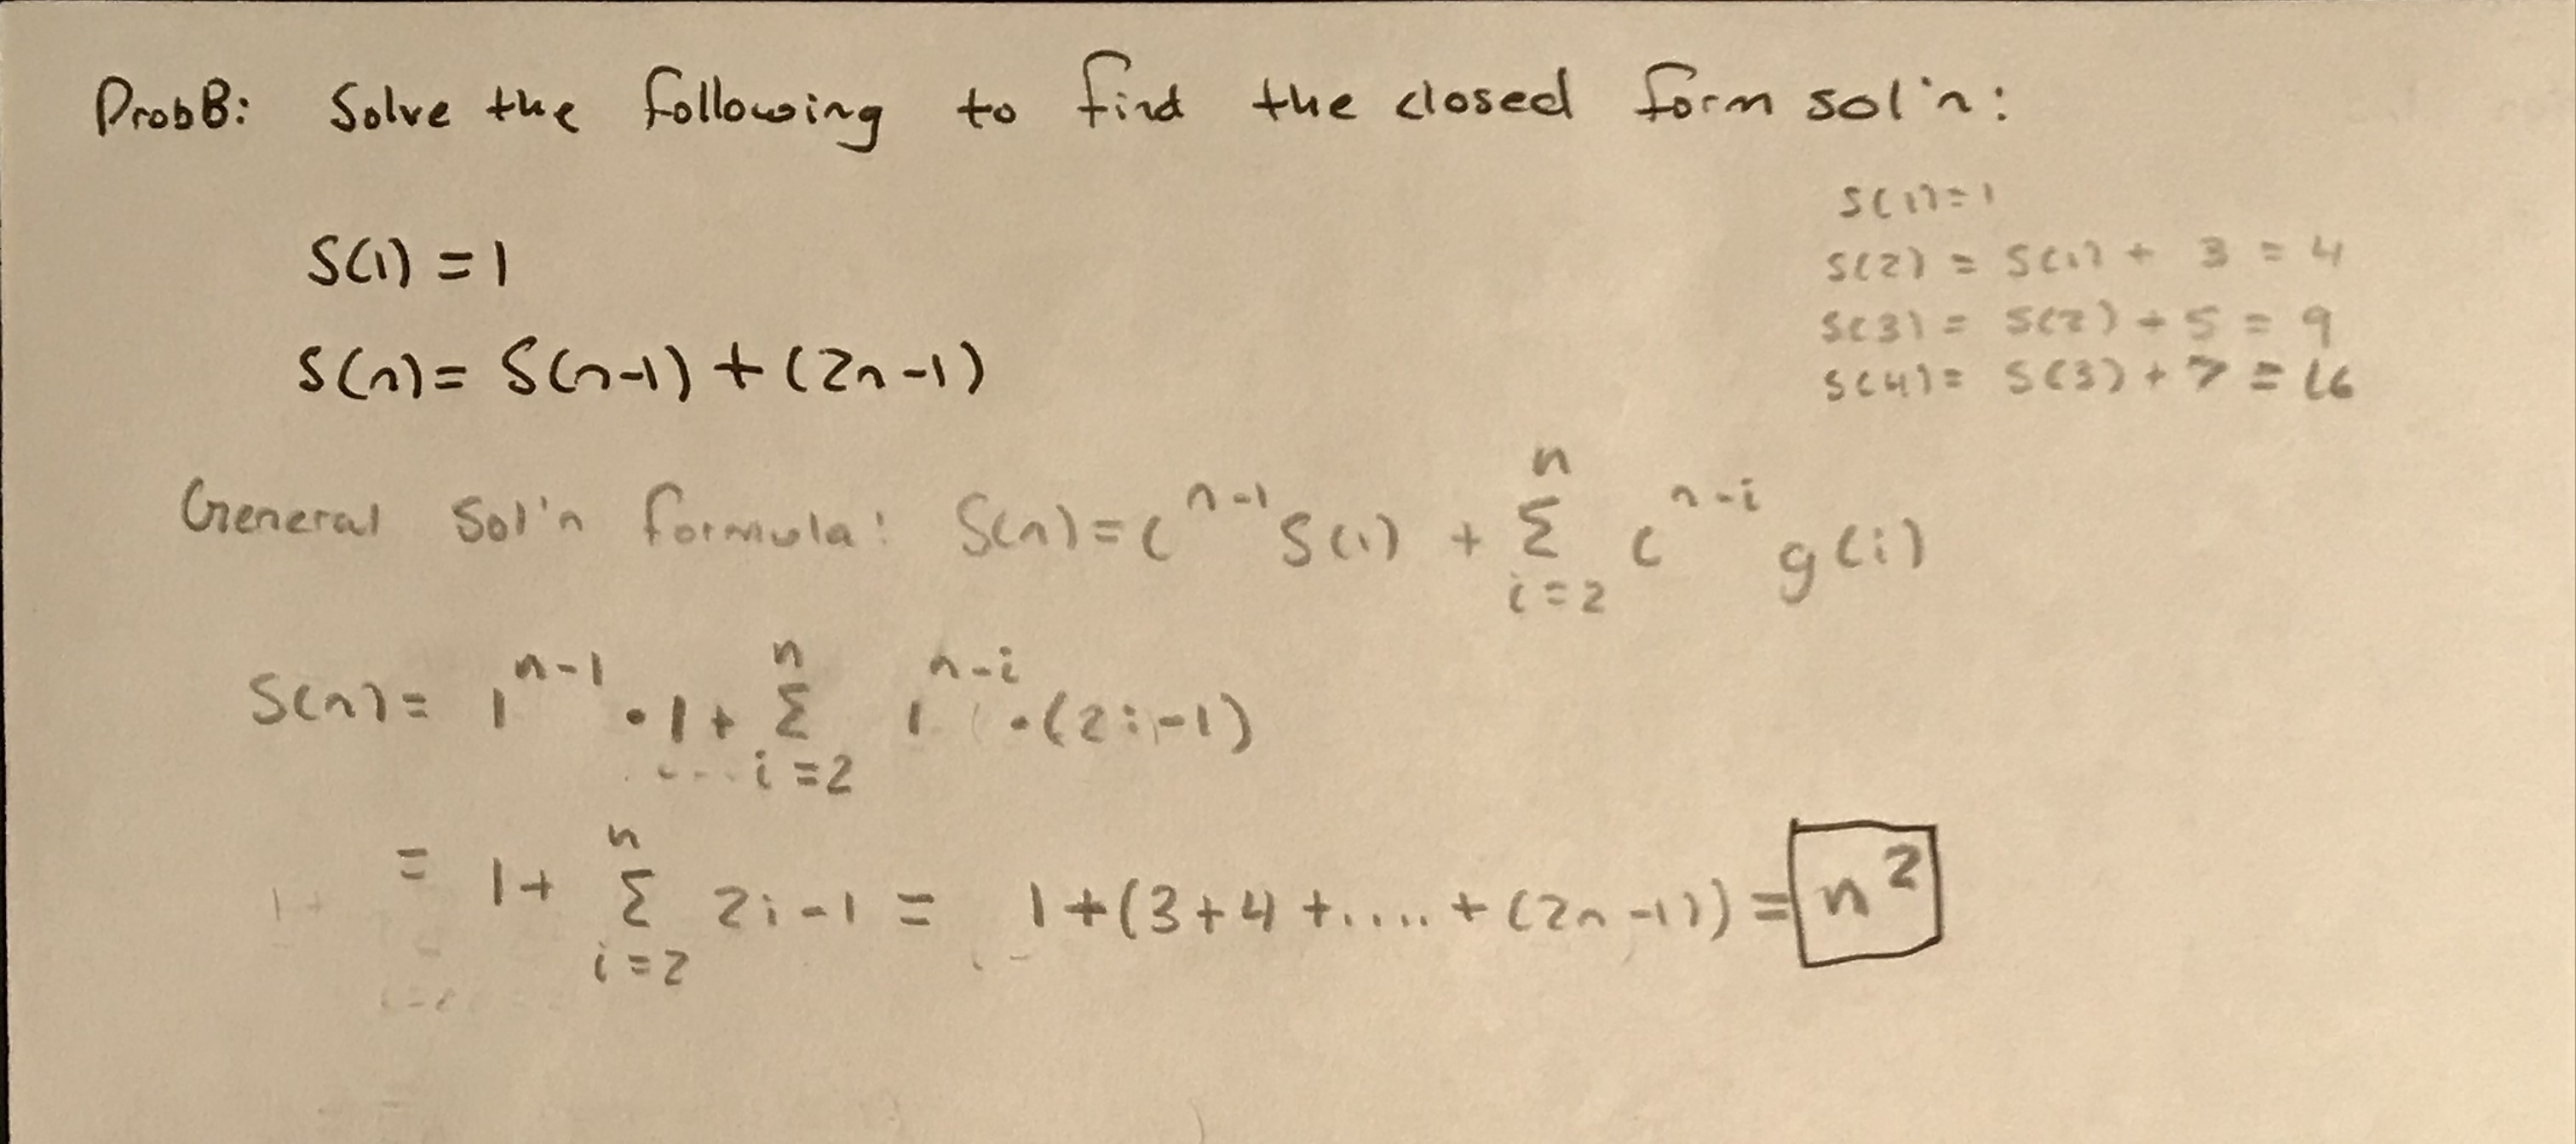 ProbB: Solve the following to find the closed form sol'n:
S(1) = 1
S(n) = S(n-1) + (2n-1)
S(1) = 1
S(2) = S(1) + 3 = 4
S(3) = S(2) + 5 = 9
S(4) = S(3) + 7 = 16
General Sol'n formula: S(n) = c^{n-1} S(1) + \sum_{i=2}^{n} c^{n-i} g(i)
S(n) = 1^{n-1} • 1 + \sum_{i=2}^{n} 1^{n-i} • (2i-1)
= 1 + \sum_{i=2}^{n} 2i-1 = 1 + (3+4+.....+(2n-1)) = n^2